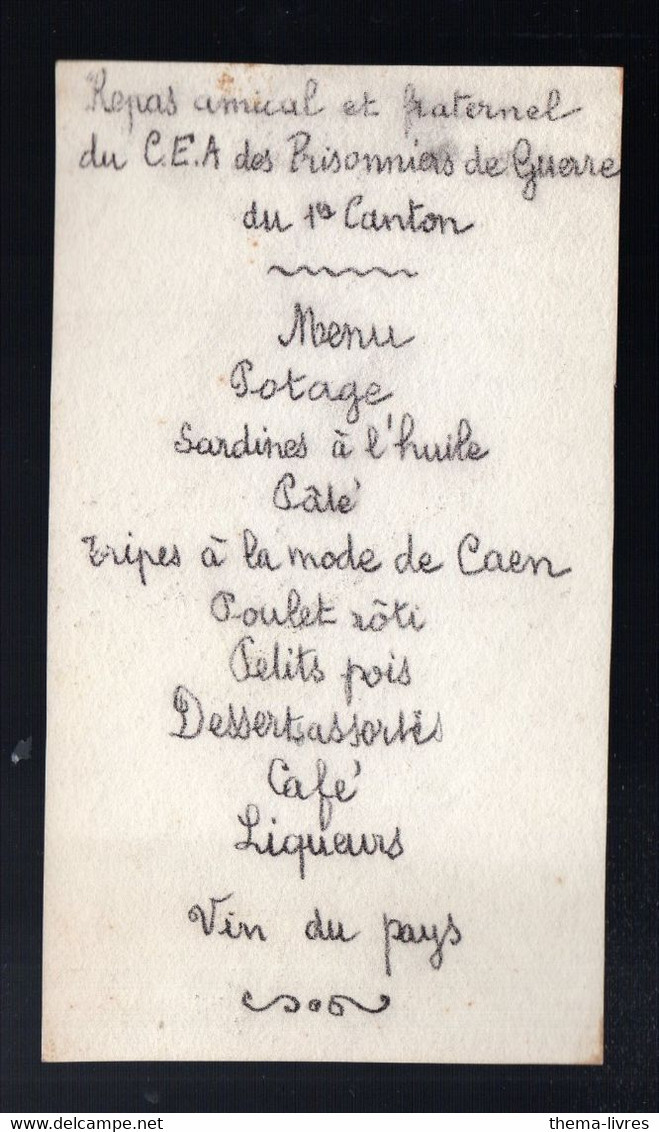 Repas amical et fraternel
du C.E.A des Prisonniers de Guerre
du 1er Canton
Menu
Potage
Sardines à l'huile
Pâté
Tripes à la mode de Caen
Poulet rôti
Petits pois
Desserts assortis
Café
Liqueurs
Vin du pays
www.delcampe.net
thema-livres